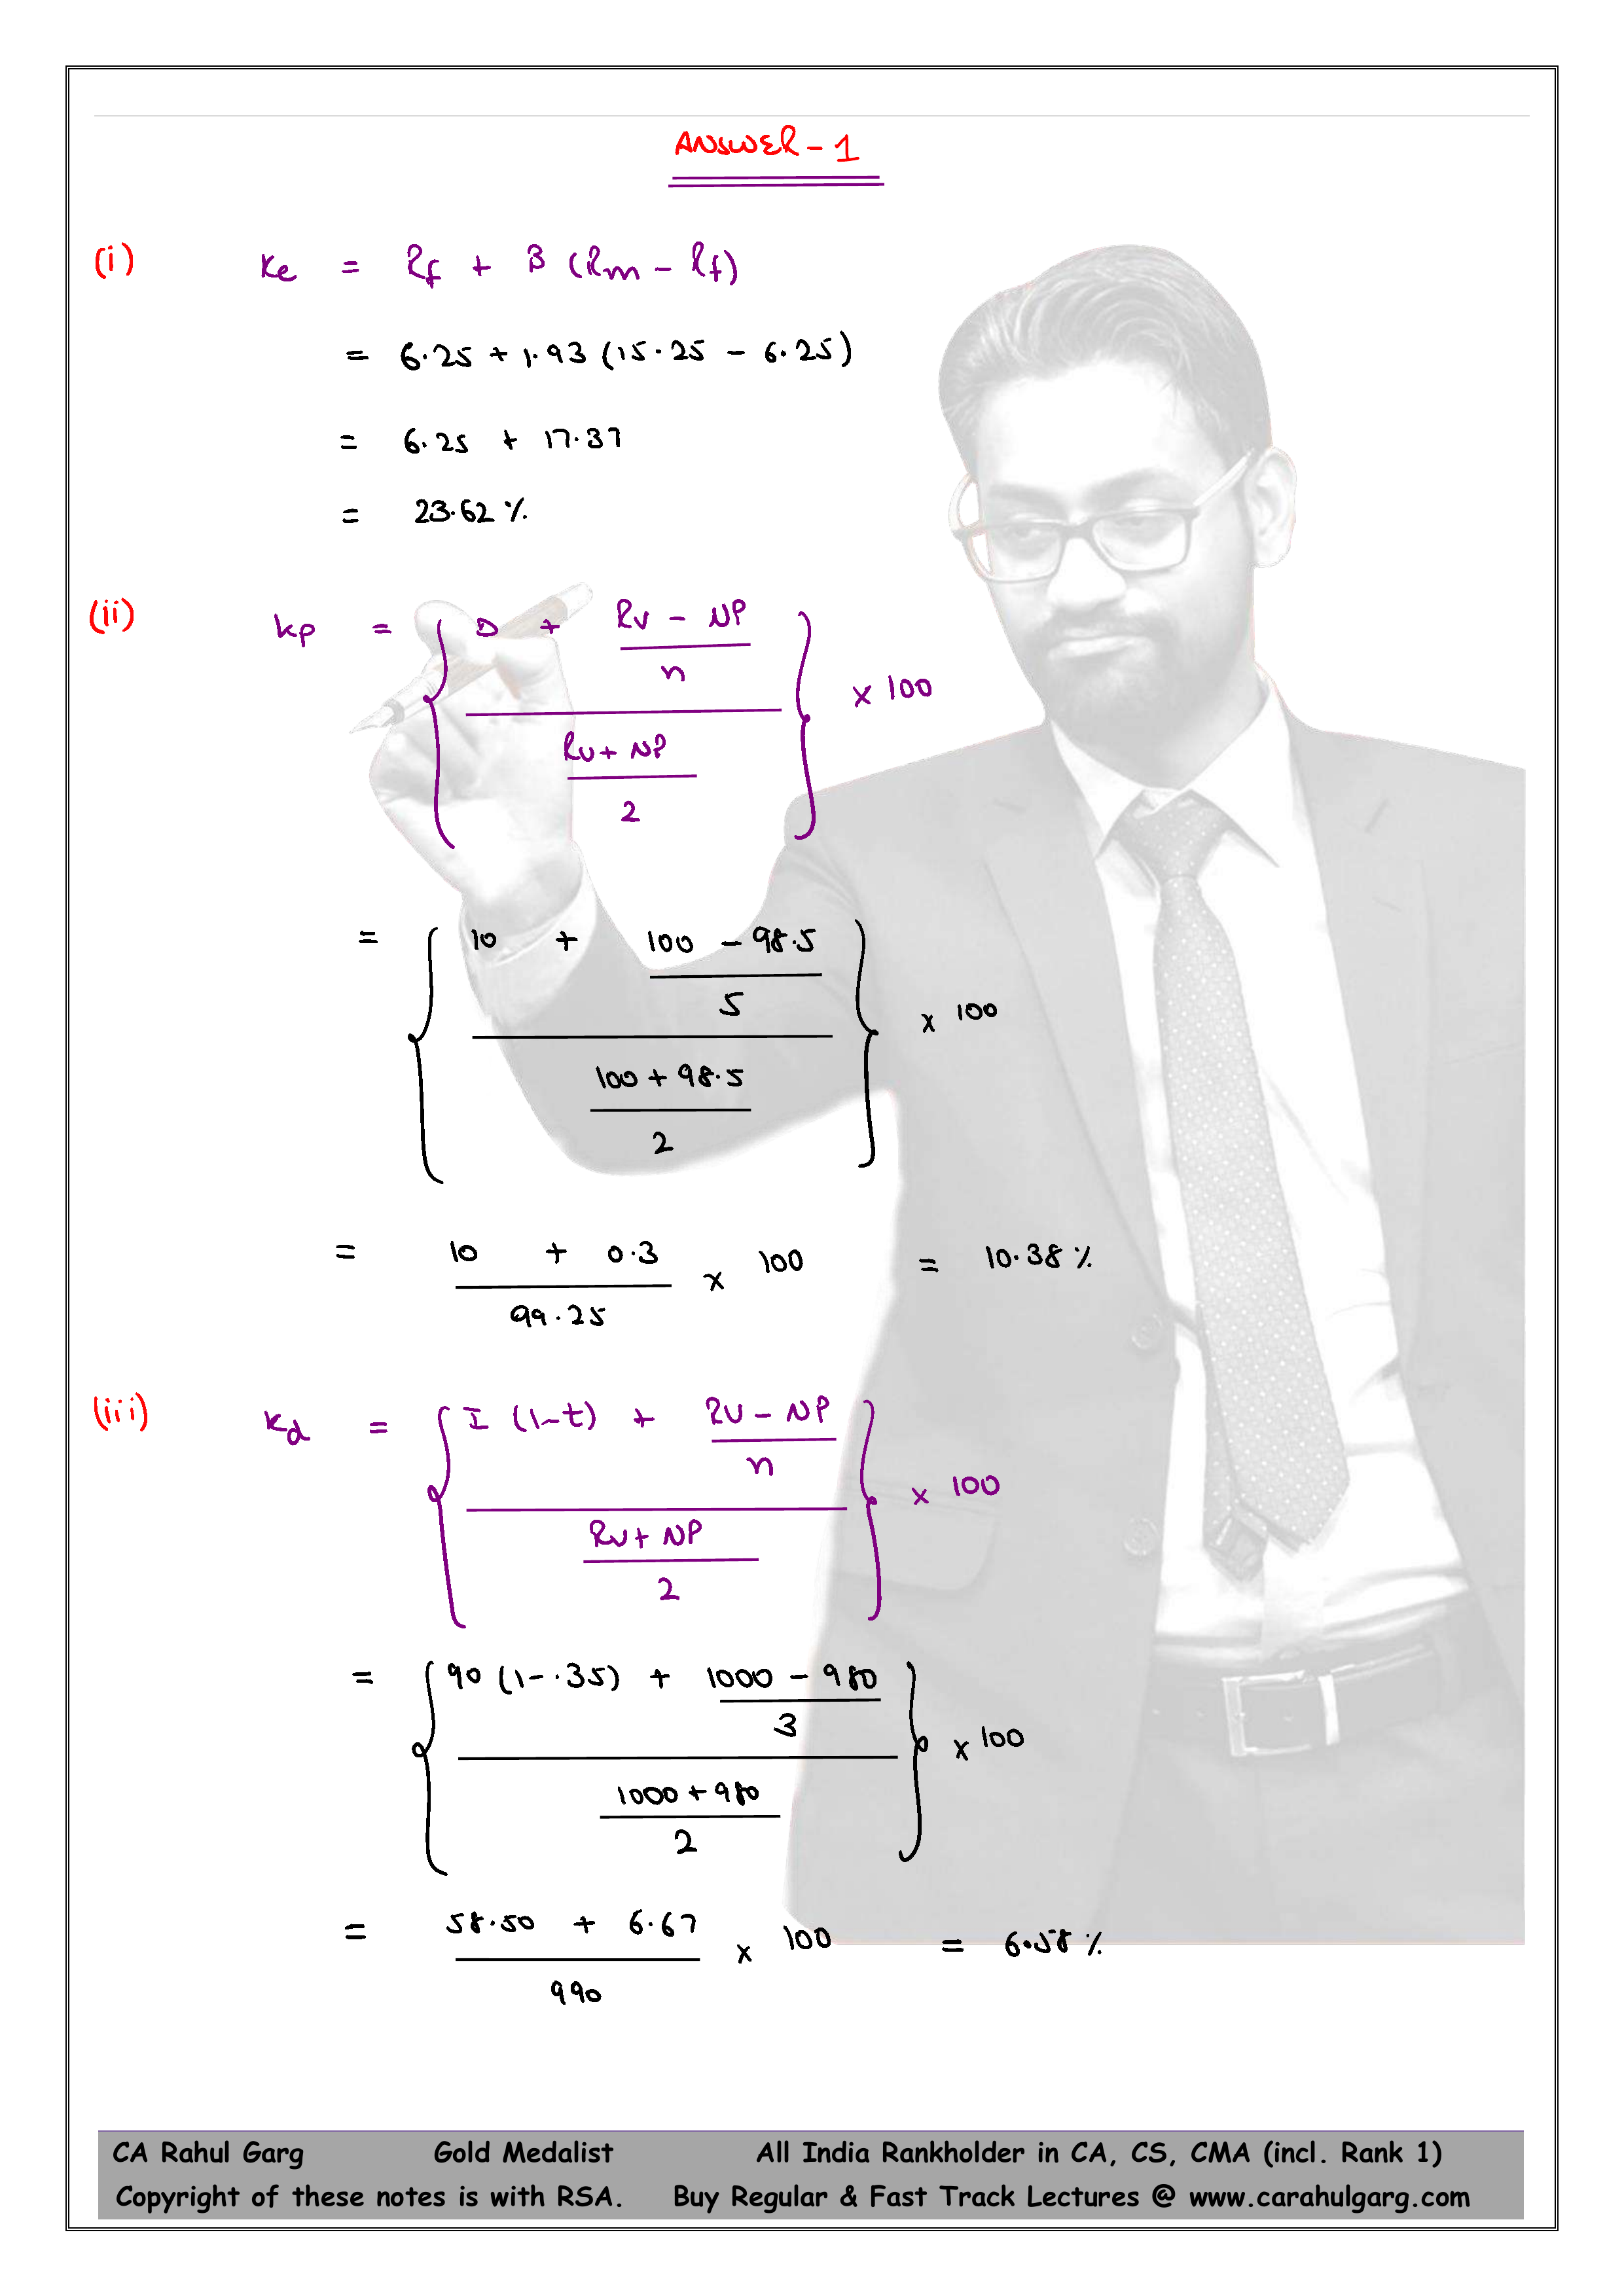 ANSWER - 1
(i) Ke = Rf + β (Rm - Rf)
= 6.25 + 1.93 (15.25 - 6.25)
= 6.25 + 17.37
= 23.62 %
(ii) Kp = { D + RV - NP
n
× 100
RV + NP
2 }
= { 10 + 100 - 98.5
5
× 100
100 + 98.5
2 }
= 10 + 0.3 × 100 = 10.38 %
99.25
(iii) Kd = { I (1-t) + RV - NP
n
× 100
RV + NP
2 }
= { 90 (1-.35) + 1000 - 980
3
× 100
1000 + 980
2 }
= 58.50 + 6.67 × 100 = 6.58 %
990
CA Rahul Garg Gold Medalist All India Rankholder in CA, CS, CMA (incl. Rank 1)
Copyright of these notes is with RSA. Buy Regular & Fast Track Lectures @ www.carahulgarg.com